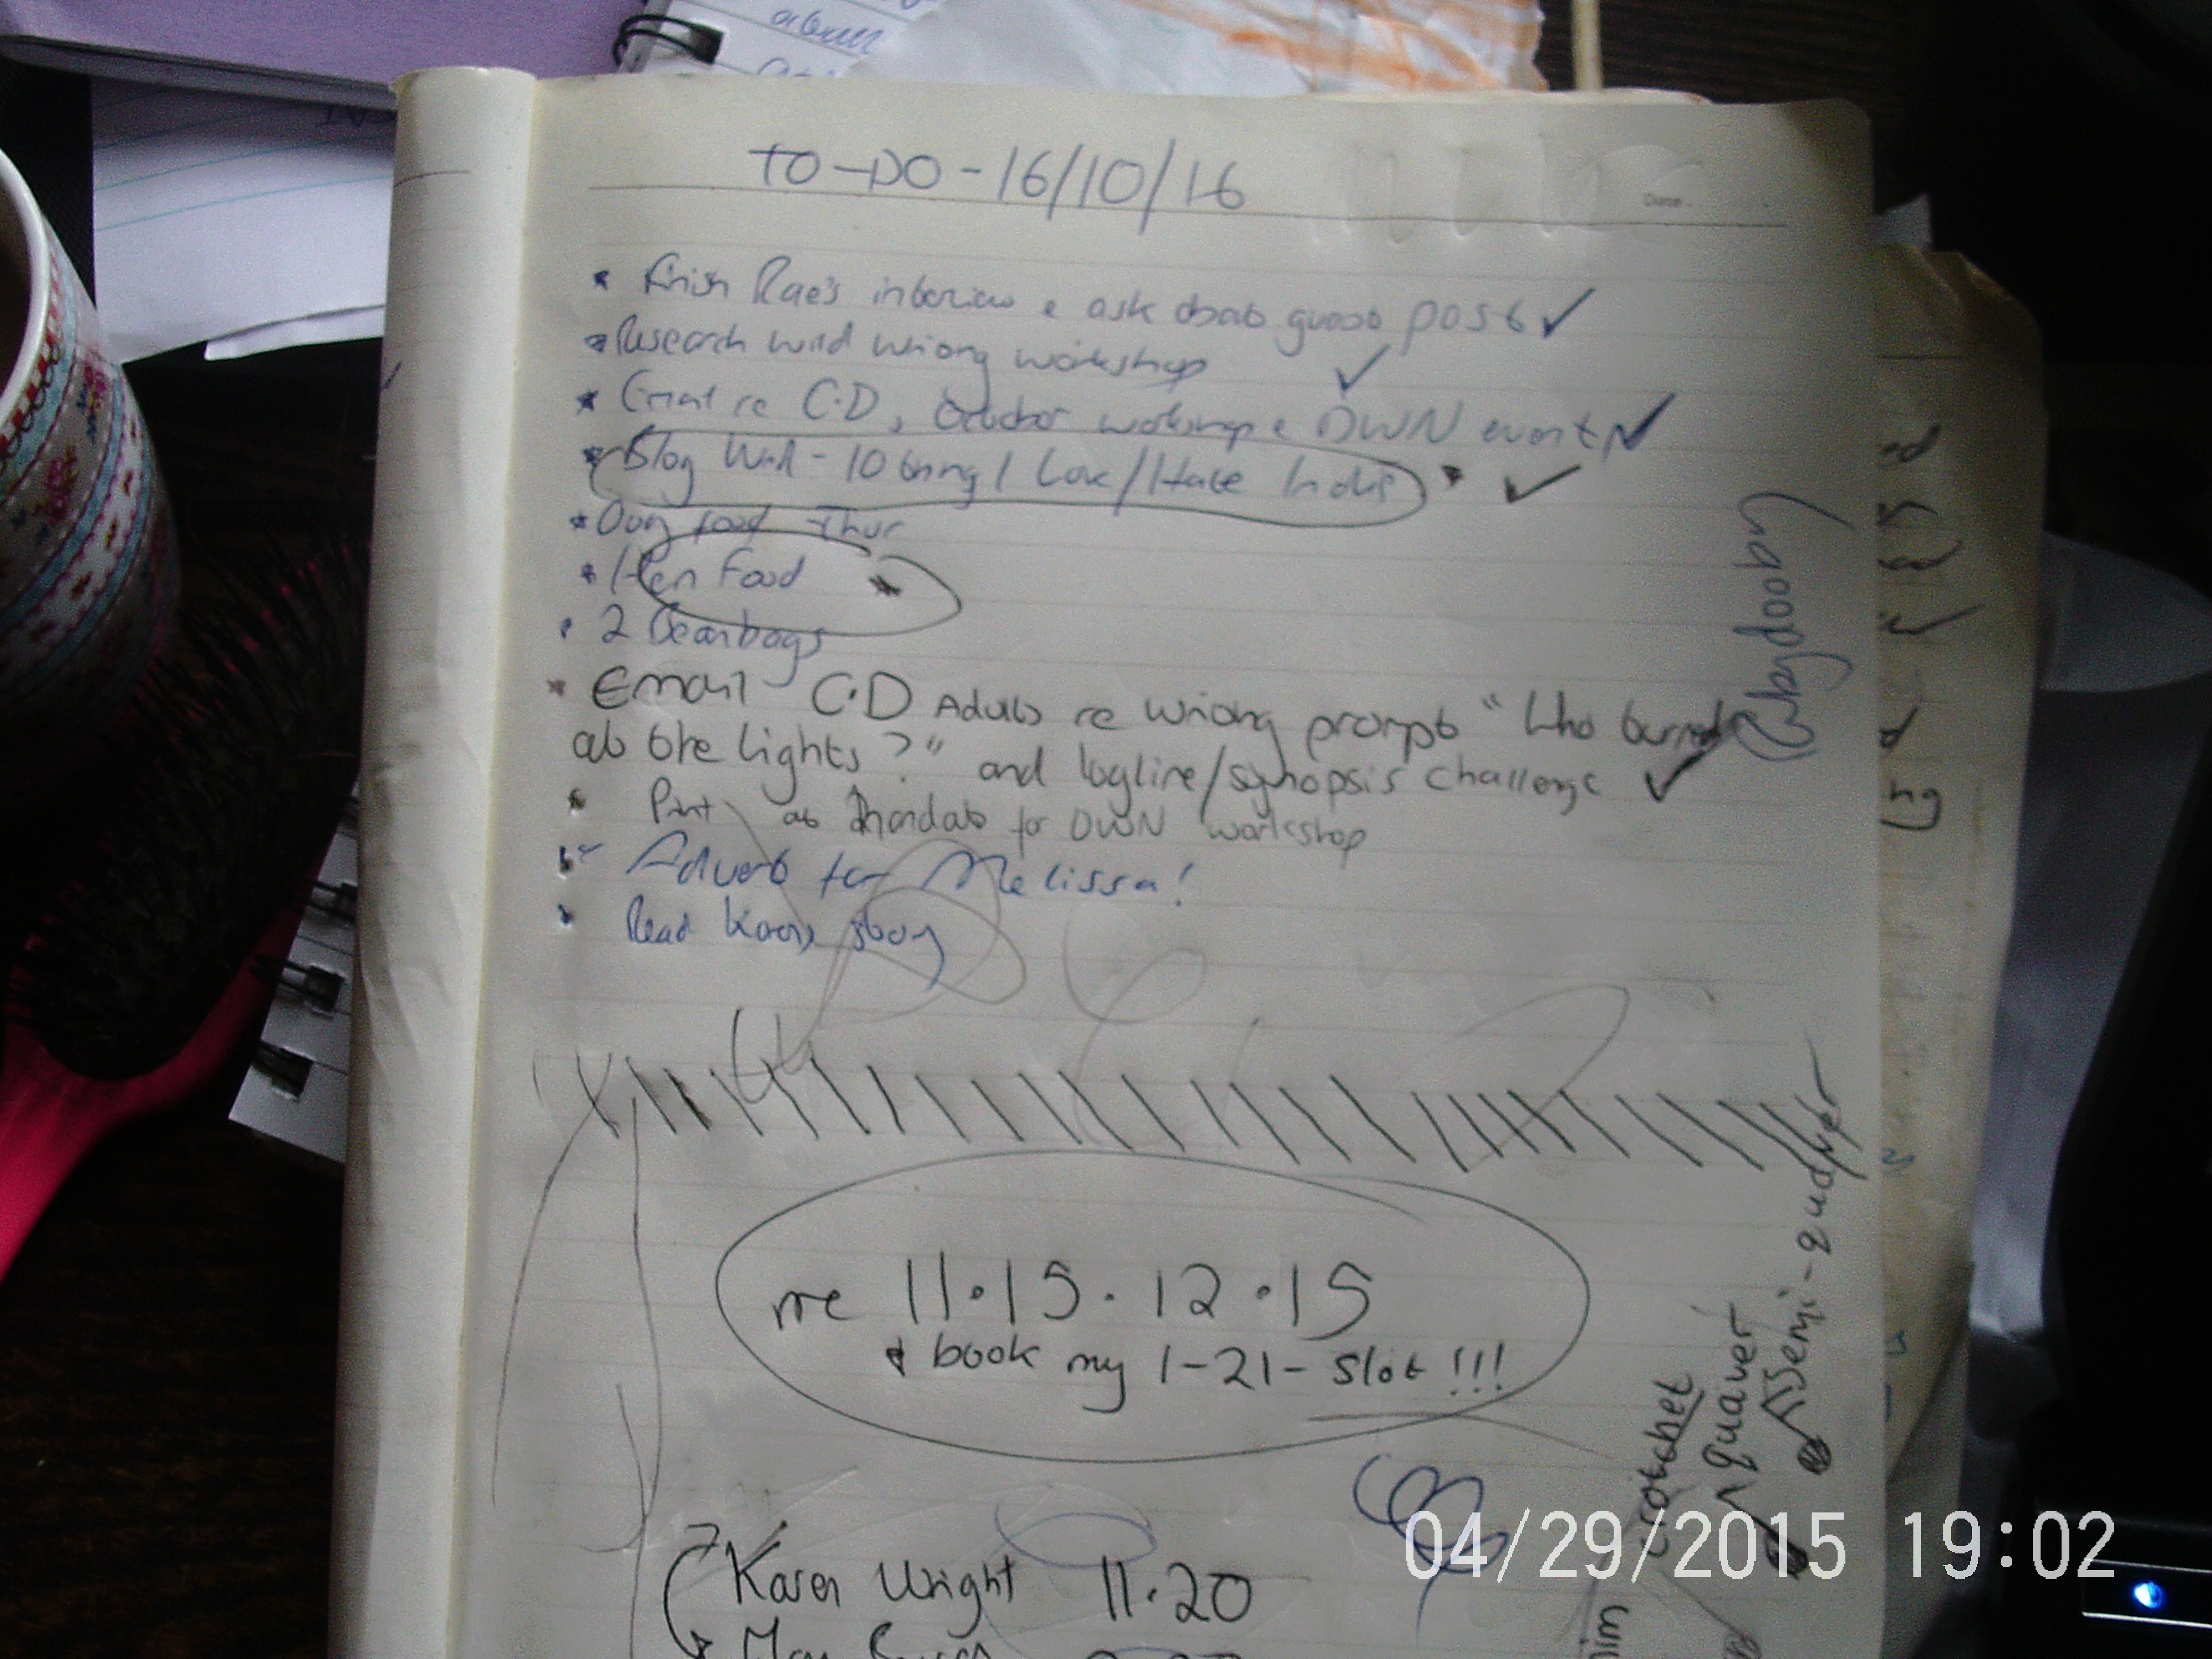 TO-DO - 16/10/16
Date
* Finish Rae's interview & ask about guest post ✓
* Research wild writing workshop ✓
* Email re C.D, October workshop & DWN event ✓
* Blog Wed - 10 things I Love/Hate Indie ✓
* food Thur
* Hen Food
2 Beanbags
* Email C.D Adults re writing prompt "Who turned
out the lights?" and logline/synopsis challenge ✓
Print out for DWN workshop
Advert for Melissa!
Read story
me 11.15 . 12.15
& book my 1-21- slot!!!
Karen Wright 11.20
crotchet
quaver
Semi-quaver
04/29/2015 19:02